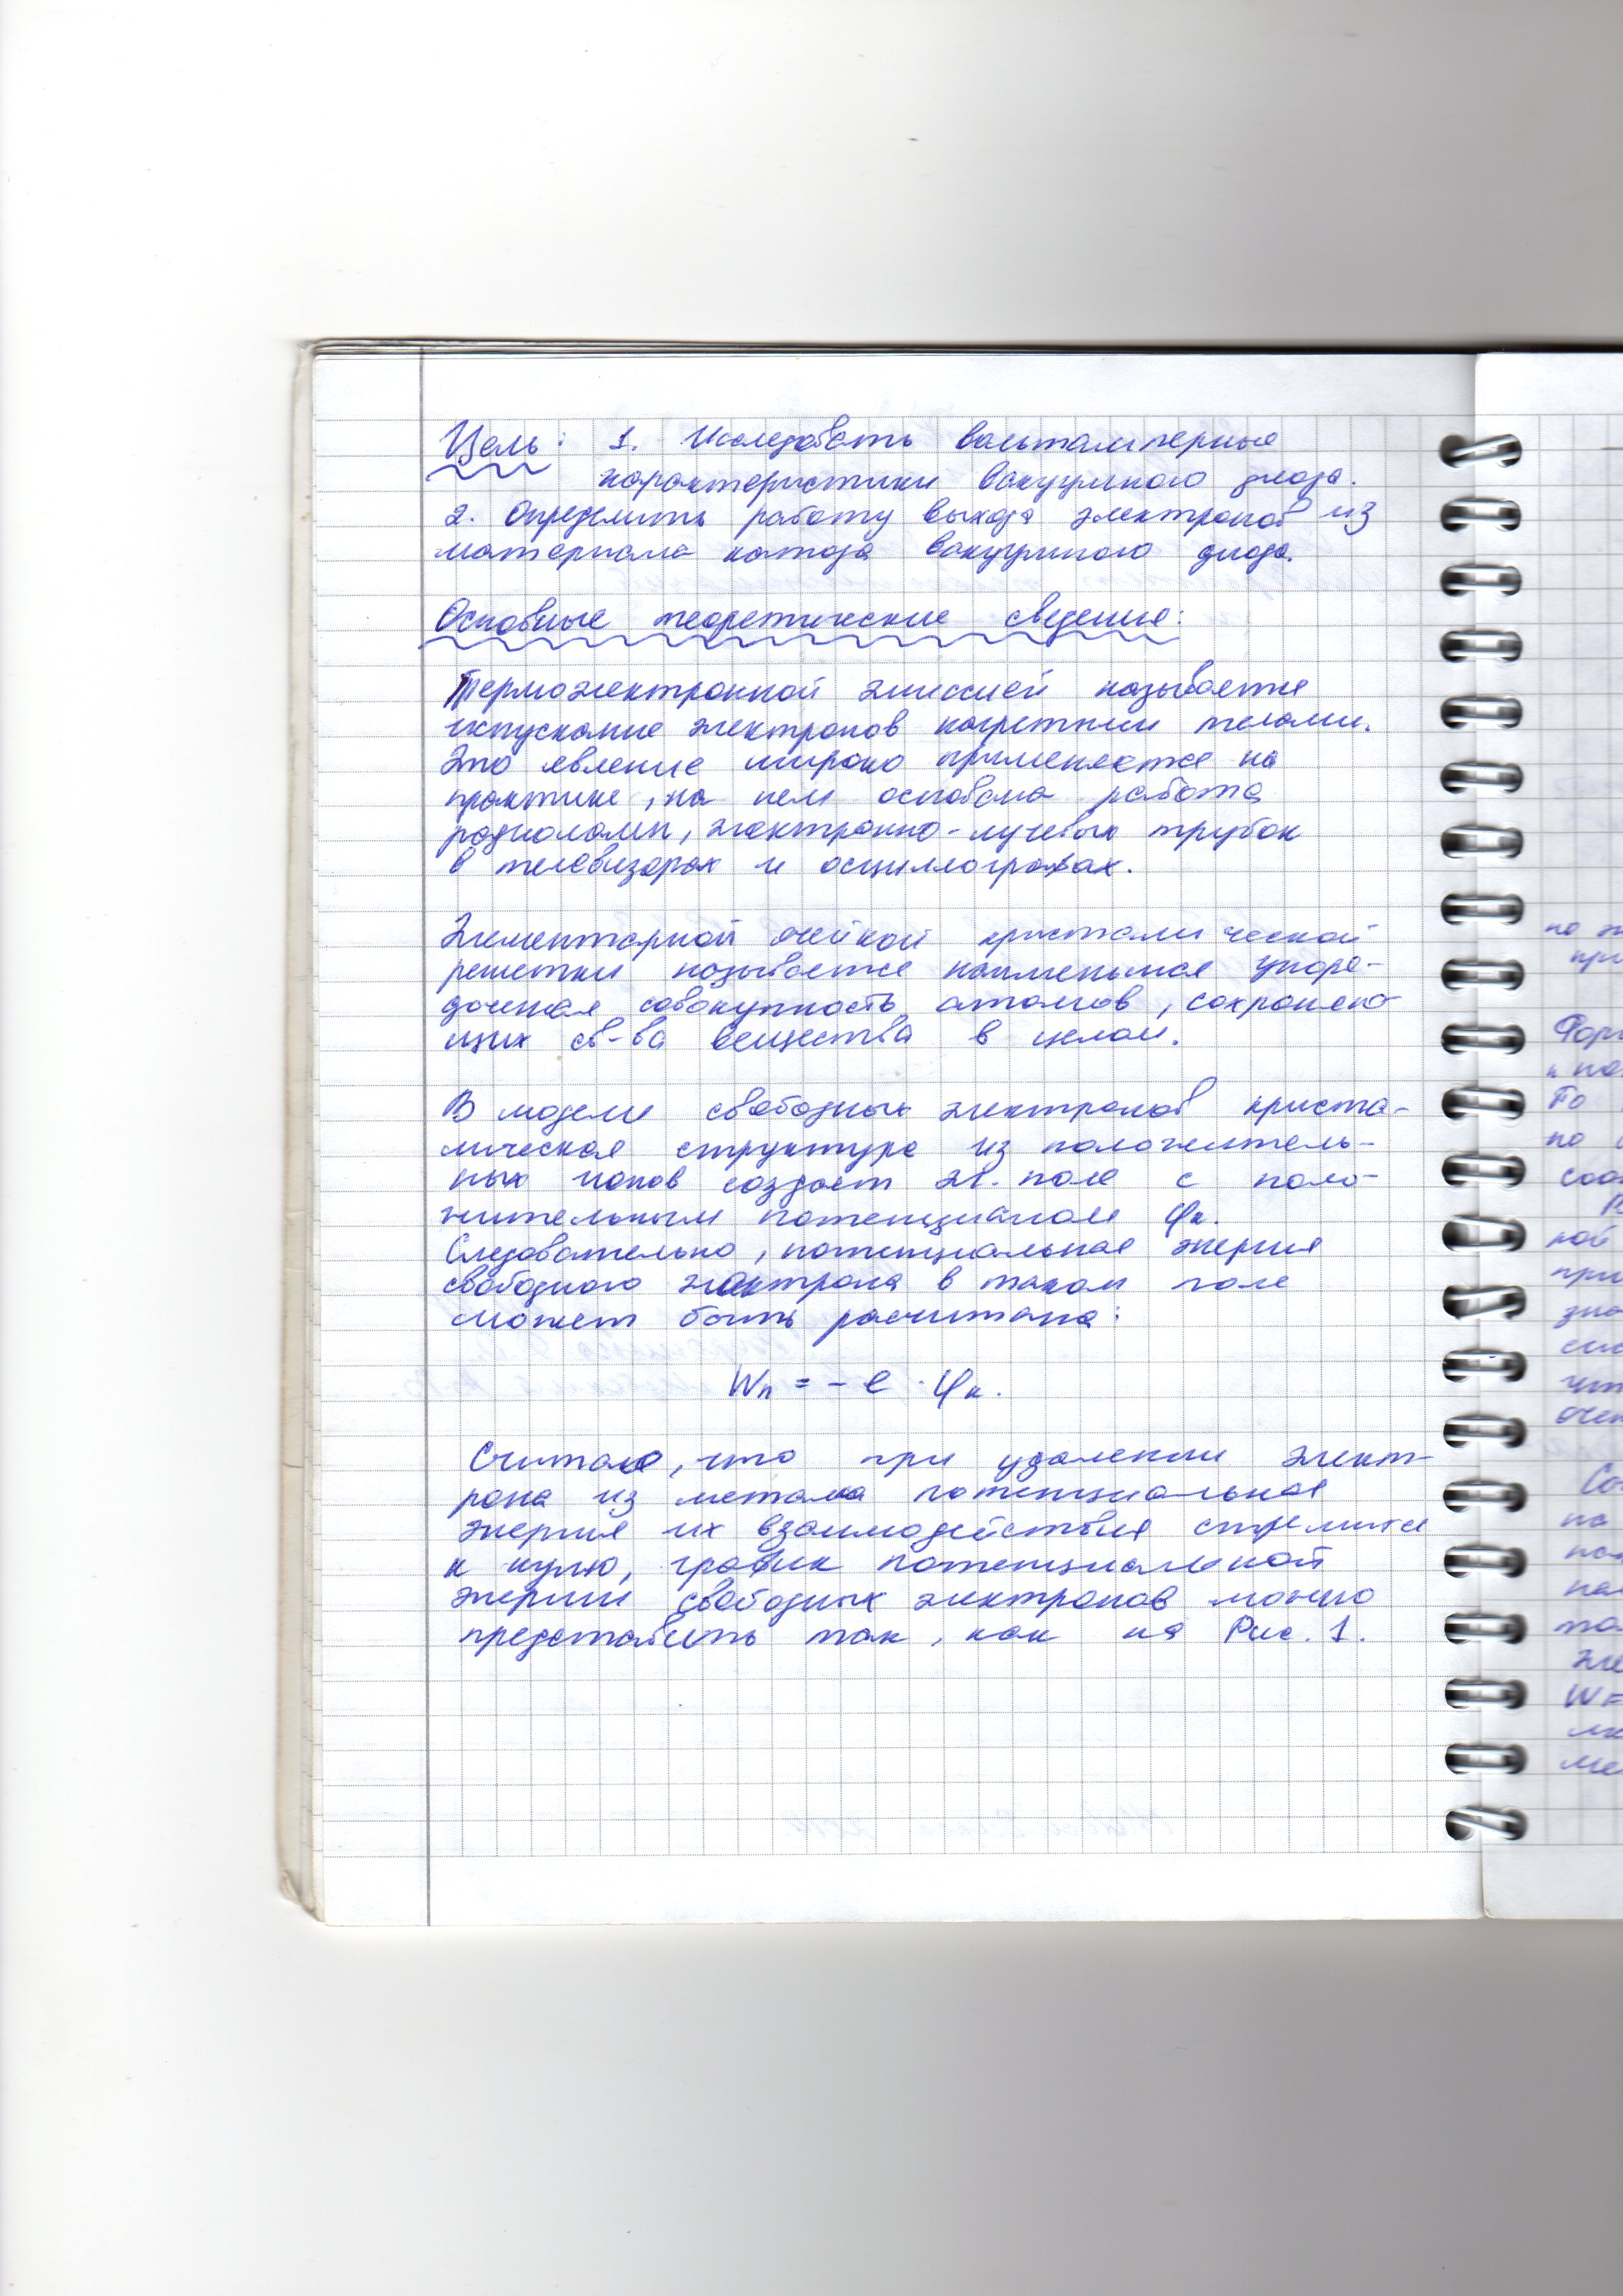 Цель: 1. Исследовать вольтамперные
характеристики вакуумного диода.
2. Определить работу выхода электронов из
материала катода вакуумного диода.
Основные теоретические сведения:
Термоэлектронной эмиссией называется
испускание электронов нагретыми телами.
Это явление широко применяется на
практике, на нем основана работа
радиоламп, электронно-лучевых трубок
в телевизорах и осциллографах.
Элементарной ячейкой кристалической
решетки называется наименьшая упоря-
доченая совокупность атомов, сохраняю-
щих св-ва вещества в целом.
В модели свободных электронов криста-
лическая структура из положитель-
ных ионов создает эл. поле с поло-
жительным потенциалом φк.
Следовательно, потенциальная энергия
свободного электрона в таком поле
может быть расчитана:
Wп = - e · φк.
Считаю, что при удалении элект-
рона из метала потенциальная
энергия их взаимодействия стремится
к нулю, график потенциальной
энергии свободных электронов можно
представить так, как на Рис. 1.
по
при
Форм
по
соо
ной
при
зна
W